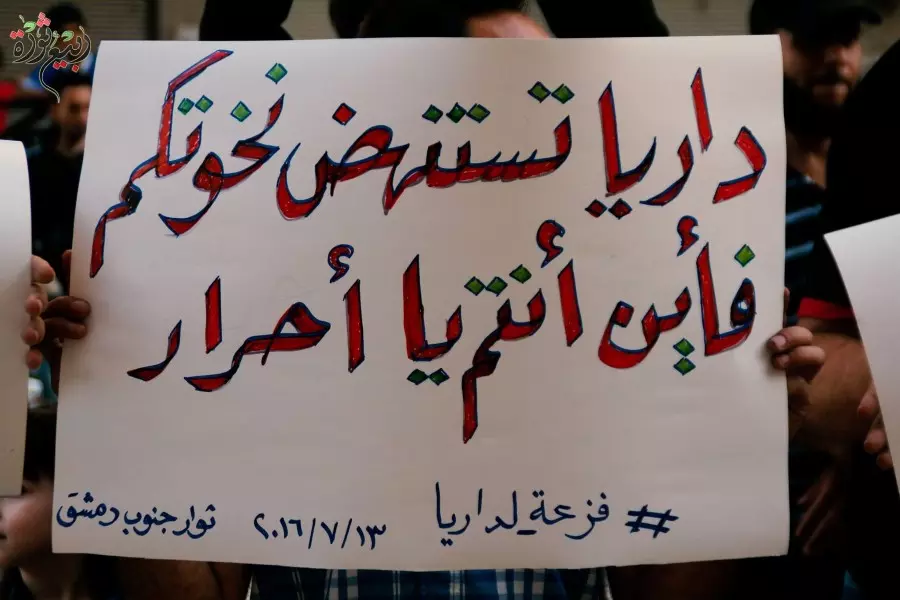 ربيع ثورة
داريا تستنهض نخوتكم
فأين أنتم يا أحرار
# فزعة_لداريا ٢٠١٦/٧/١٣ ثوار جنوب دمشق